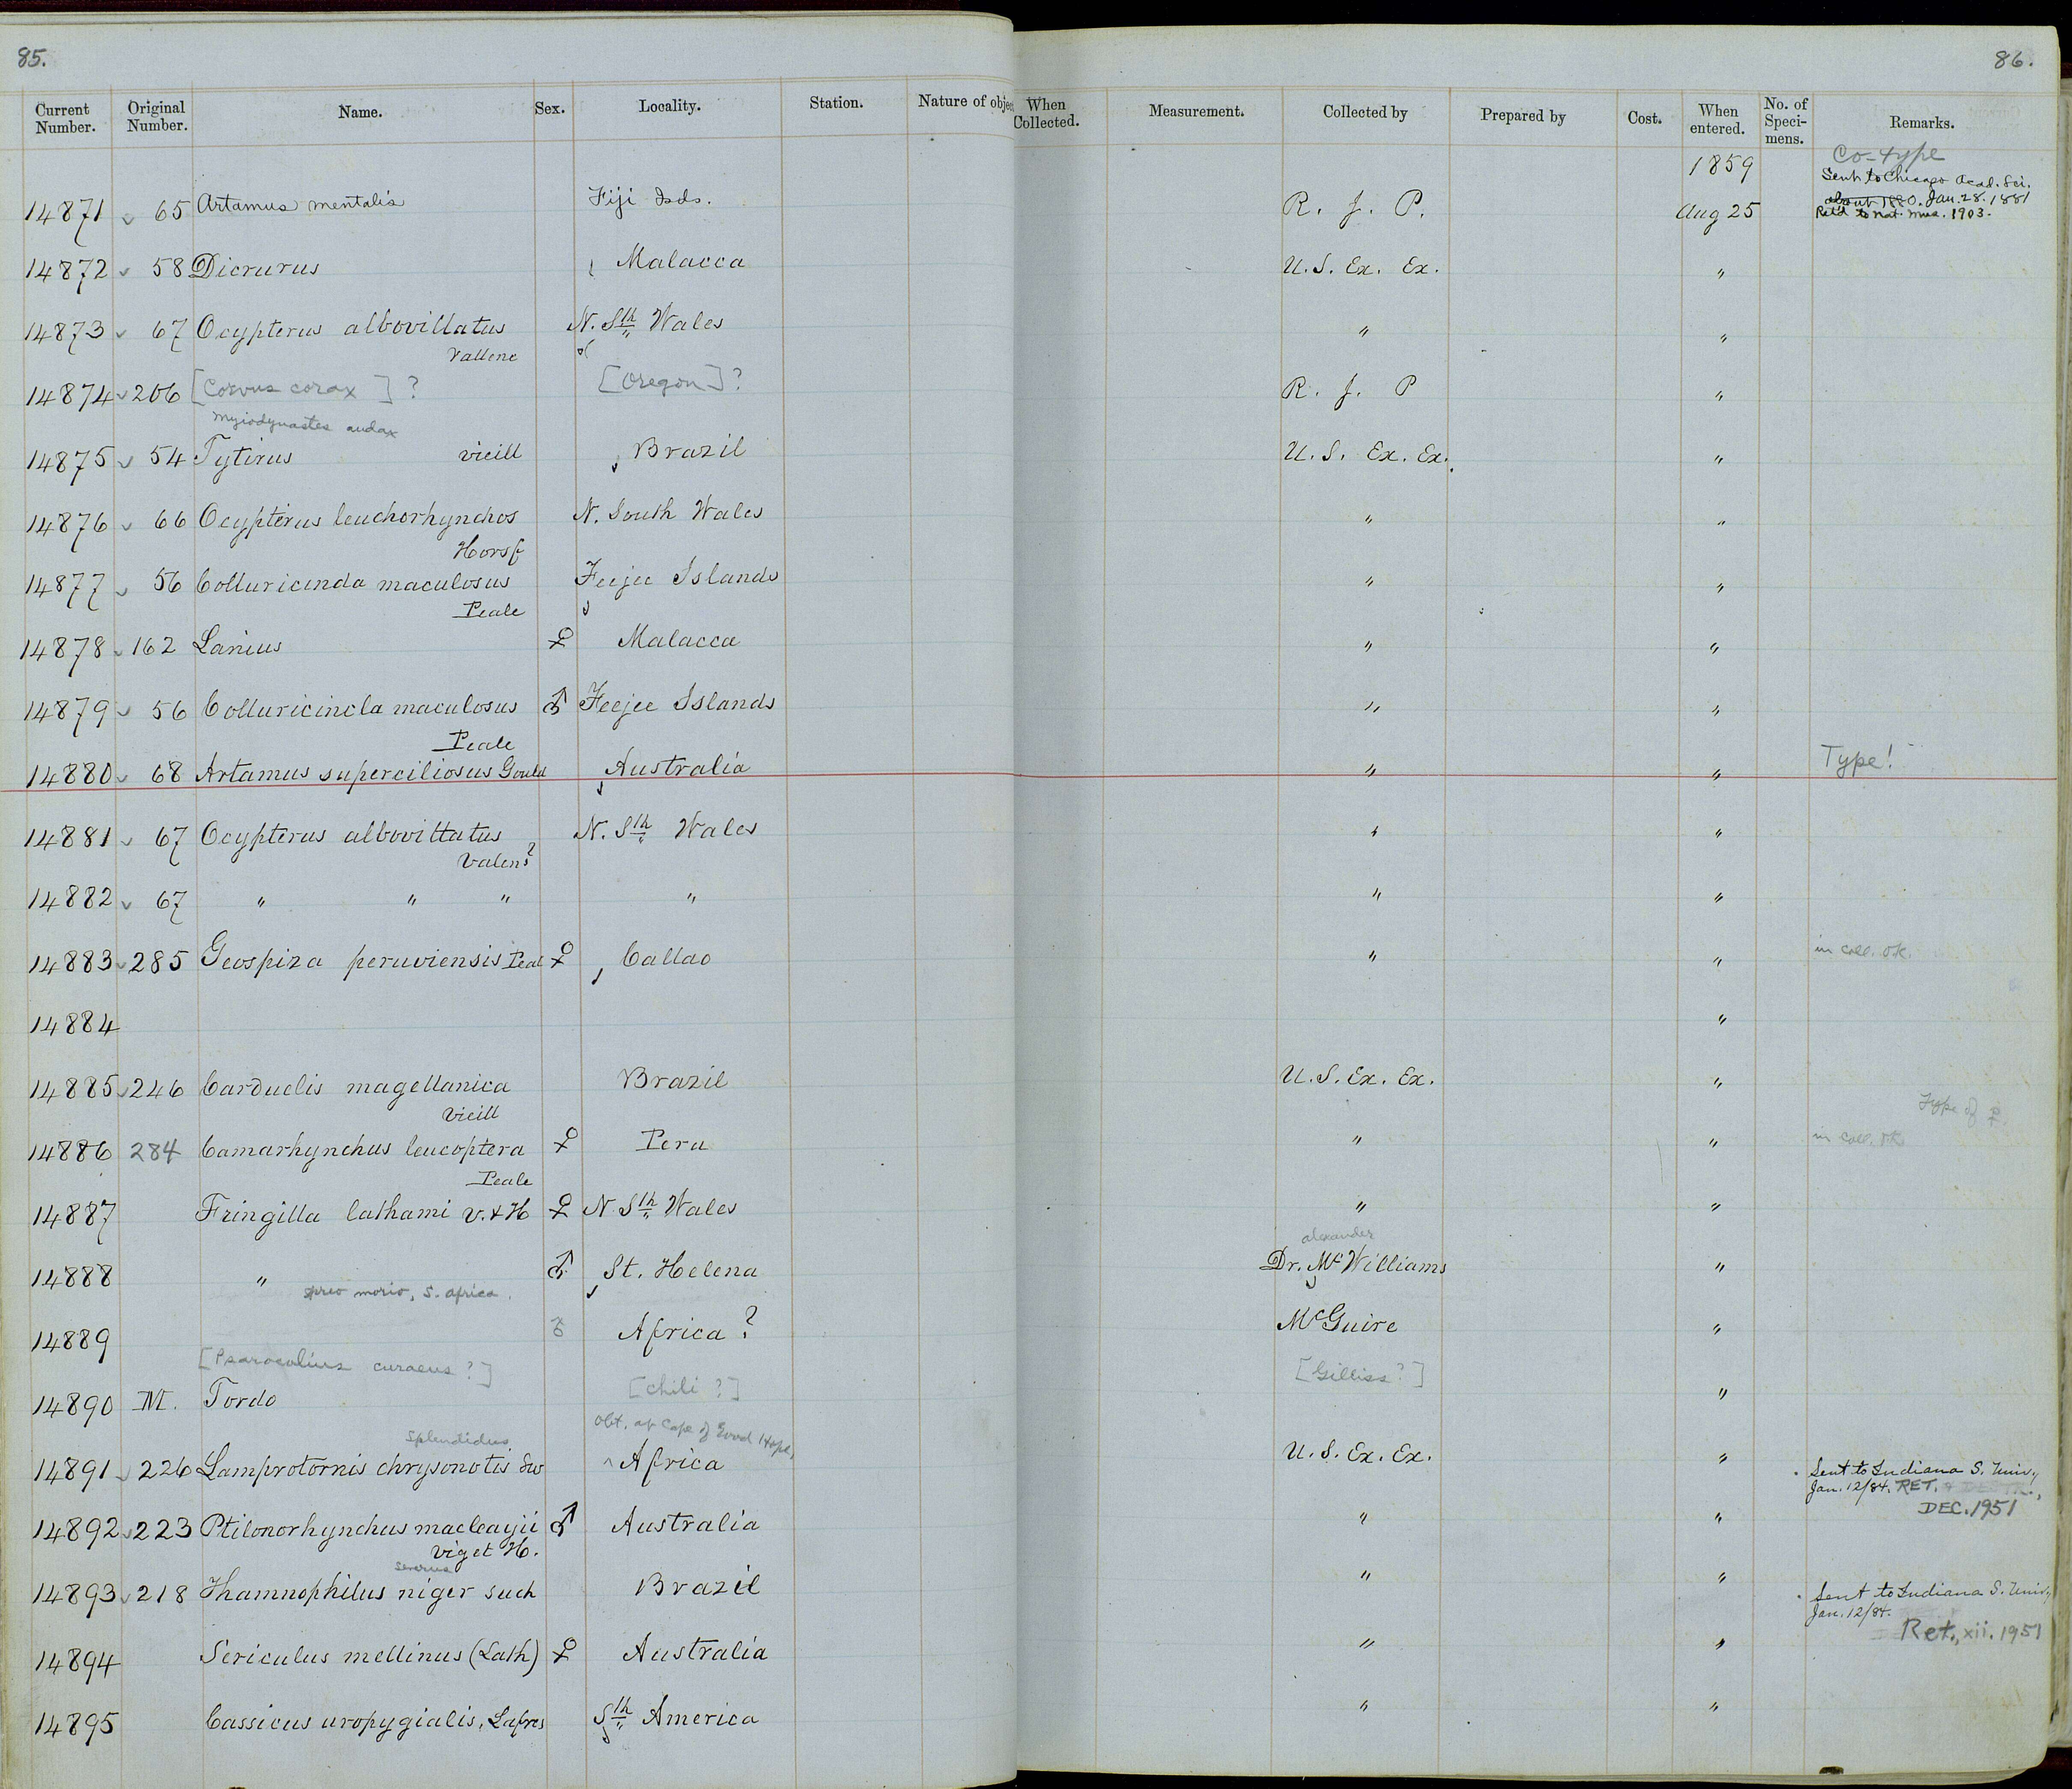 85.
86.
Current Number. Original Number. Name. Sex. Locality. Station. Nature of objec When Collected. Measurement. Collected by Prepared by Cost. When entered. No. of Speci-mens. Remarks.
1859 Co-type
Sent to Chicago Acad. Sci.
about 1880. Jan. 28. 1881
14871 65 Artamus mentalis Fiji Isds. R. J. P. Aug 25 Ret'd to Nat. Mus. 1903.
14872 58 Dicrurus Malacca U. S. Ex. Ex. "
14873 67 Ocypterus albovillatus N. Sth Wales " "
Vallene
14874 206 [Corvus corax] ? [Oregon]? R. J. P "
Myiodynastes audax
14875 54 Tytirus vieill Brazil U. S. Ex. Ex. "
14876 66 Ocypterus leuchorhynchos N. South Wales " "
Horsf
14877 56 Colluricinda maculosus Feejee Islands " "
Peale
14878 162 Lanius ♀ Malacca " "
14879 56 Colluricincla maculosus ♂ Feejee Islands " "
Peale
14880 68 Artamus superciliosus Gould Australia " " Type!
14881 67 Ocypterus albovittatus N. Sth Wales " "
Valens?
14882 67 " " " " " "
14883 285 Geospiza peruviensis Peal ♀ Callao " " in coll. OK.
14884 "
14885 246 Carduelis magellanica Brazil U. S. Ex. Ex. "
Vieill Type of ♀.
14886 284 Camarhynchus leucoptera ♀ Peru " " in coll. OK
Peale
14887 Fringilla lathami V. & H ♀ N Sth Wales " "
alexander
14888 " ♂ St. Helena Dr. McWilliams "
Spreo morio, S. Africa.
14889 ♂ Africa? McGuire "
[Psaracolius curaeus?] [Chili?] [Gilliss?]
14890 M. Tordo "
Splendidus Obt. at Cape of Good Hope,
14891 226 Lamprotornis chrysonotis Sw Africa U. S. Ex. Ex. "
Sent to Indiana S. Univ.,
Jan. 12/84. RET.
DEC. 1951
14892 223 Ptilonorhynchus macleayii ♂ Australia " "
Vig et H.
severus
14893 218 Thamnophilus niger such Brazil " "
Sent to Indiana S. Univ.,
Jan. 12/84.
Ret., xii. 1951
14894 Sericulus mellinus (Lath) ♀ Australia " "
14895 Cassicus uropygialis, Lafres Sth America " "